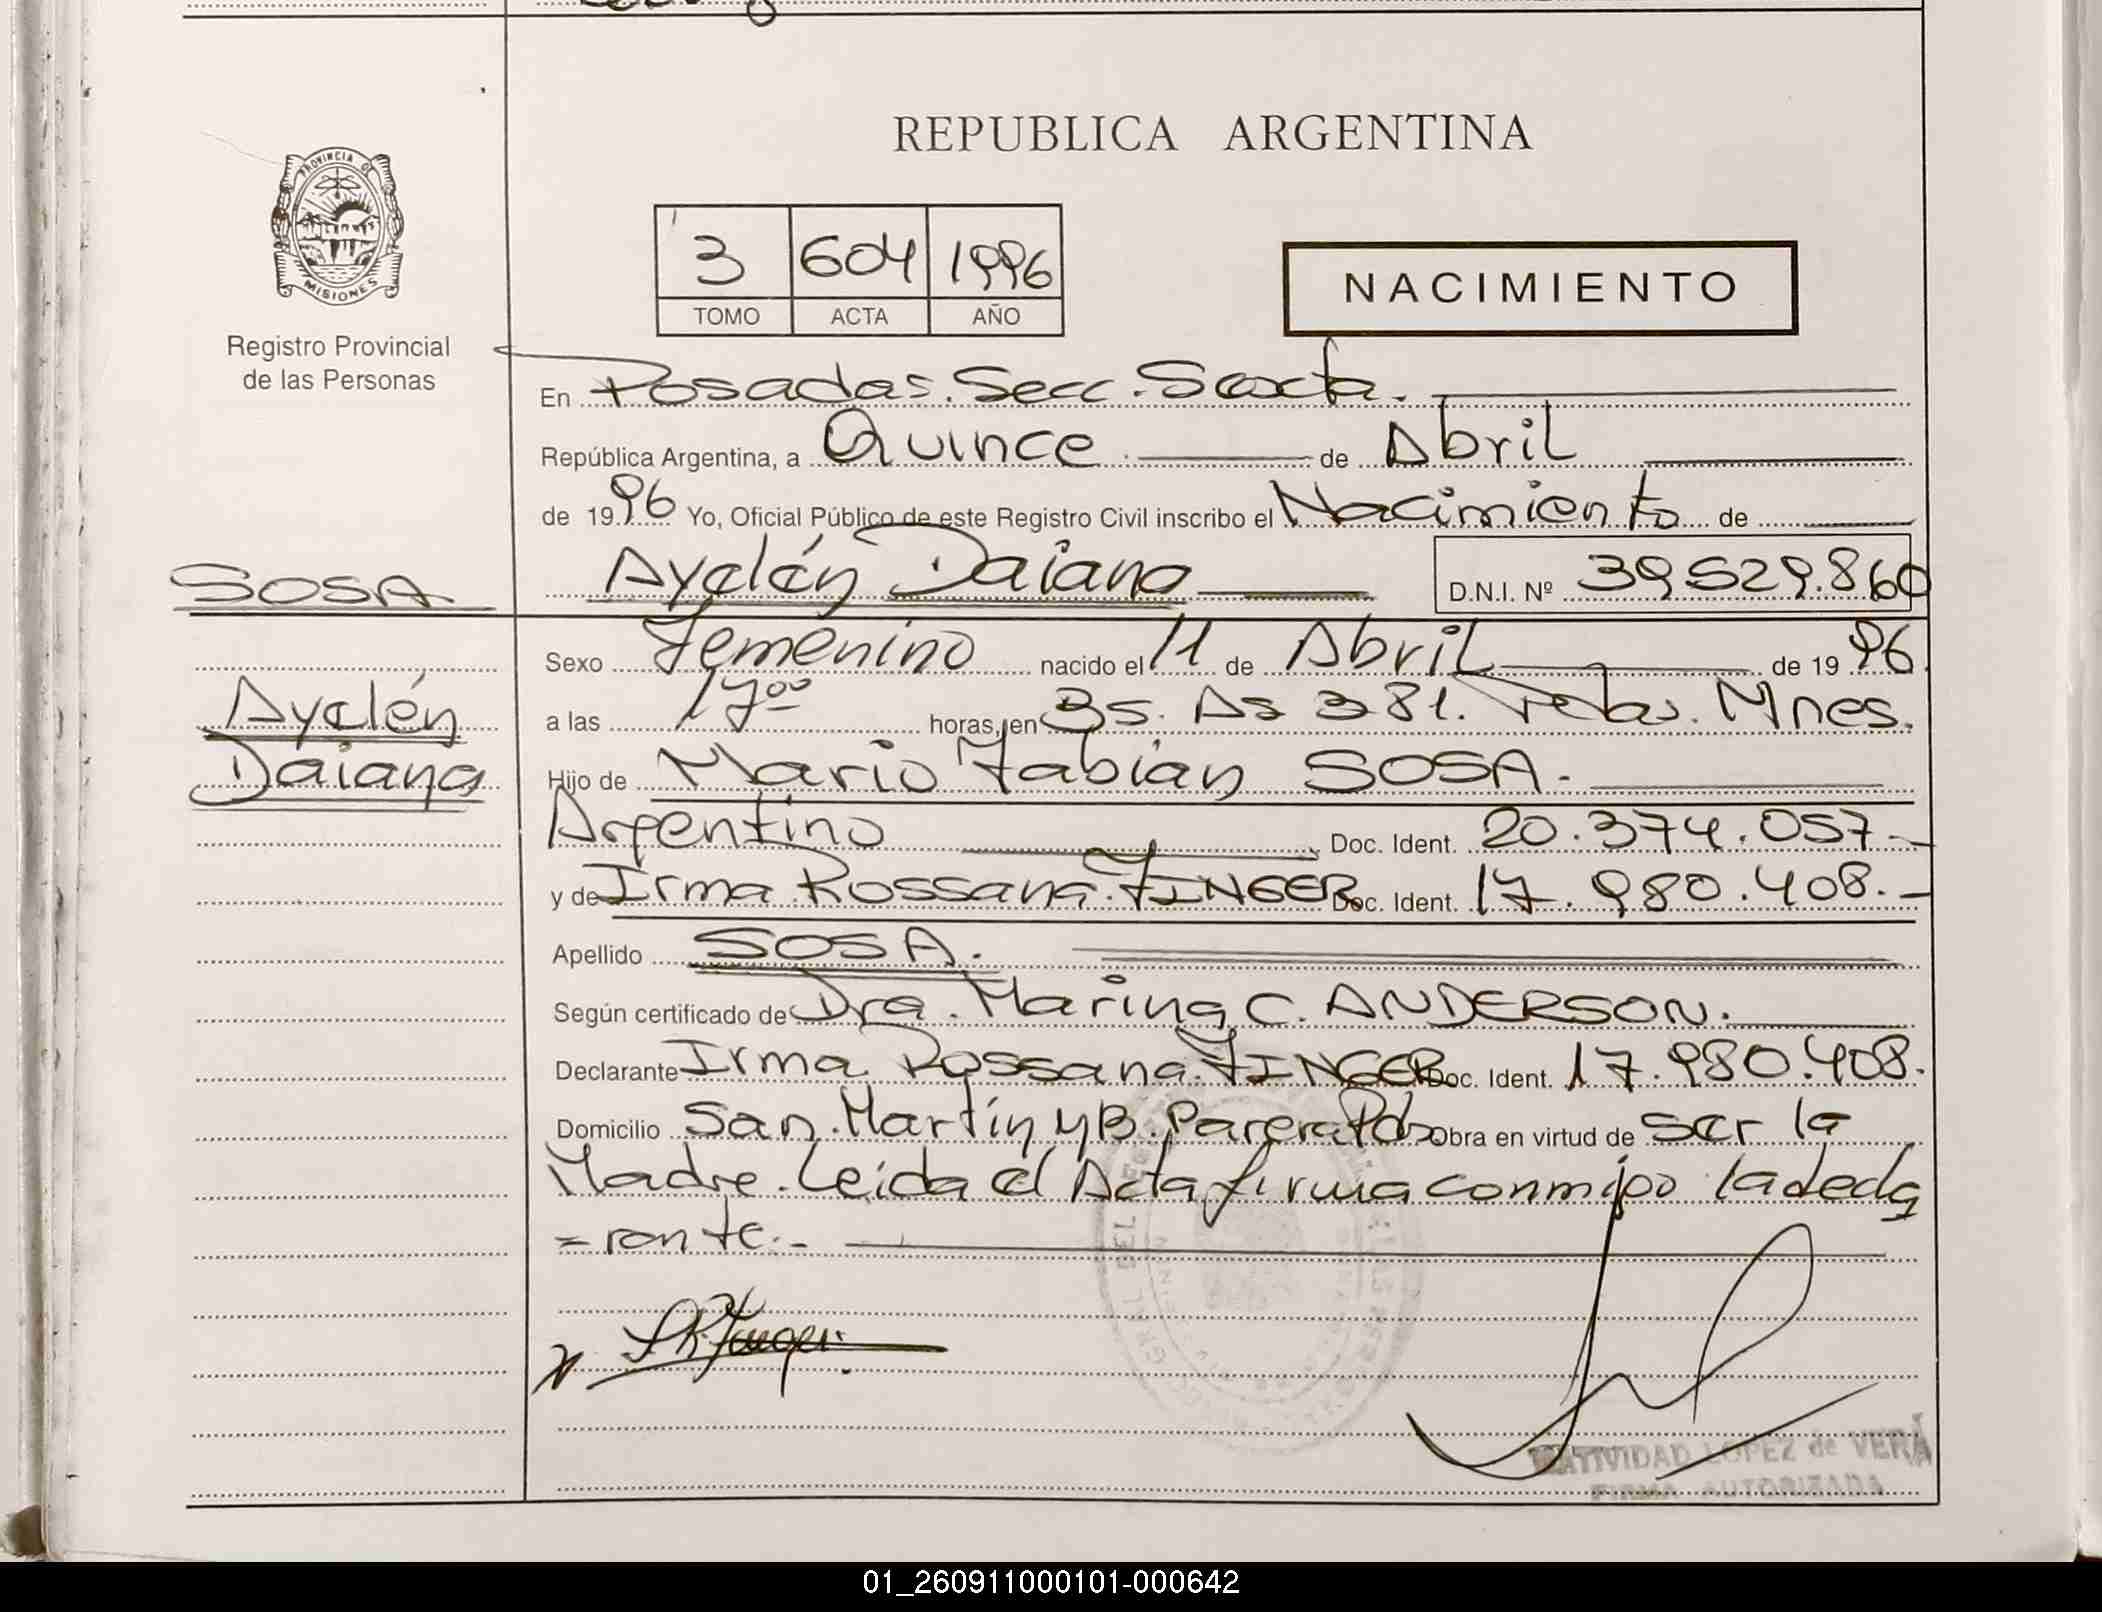 REPUBLICA ARGENTINA
PROVINCIA DE
MISIONES
Registro Provincial
de las Personas
3 604 1996
TOMO ACTA AÑO
NACIMIENTO
En Posadas. Secc. Sexta.
República Argentina, a Quince de Abril
de 1996 Yo, Oficial Público de este Registro Civil inscribo el Nacimiento de
SOSA
Ayelén Daiana D.N.I. Nº 39.529.860
Sexo Femenino nacido el 11 de Abril de 1996
Ayelén
Daiana
a las 17⁰⁰ horas, en Bs. As 381. Pdas. Mnes.
Hijo de Mario Fabián SOSA.
Argentino Doc. Ident. 20.374.057.-
y de Irma Rossana FINGER Doc. Ident. 17.980.408.-
Apellido SOSA.
Según certificado de Dra. Marina C. ANDERSON.
Declarante Irma Rossana FINGER Doc. Ident. 17.980.408.
Domicilio San Martín y B. Parera Pdas Obra en virtud de ser la
Madre. Leida el Acta firma conmigo la decla
=rante.-
NATIVIDAD LOPEZ de VERA
FIRMA AUTORIZADA
01_260911000101-000642